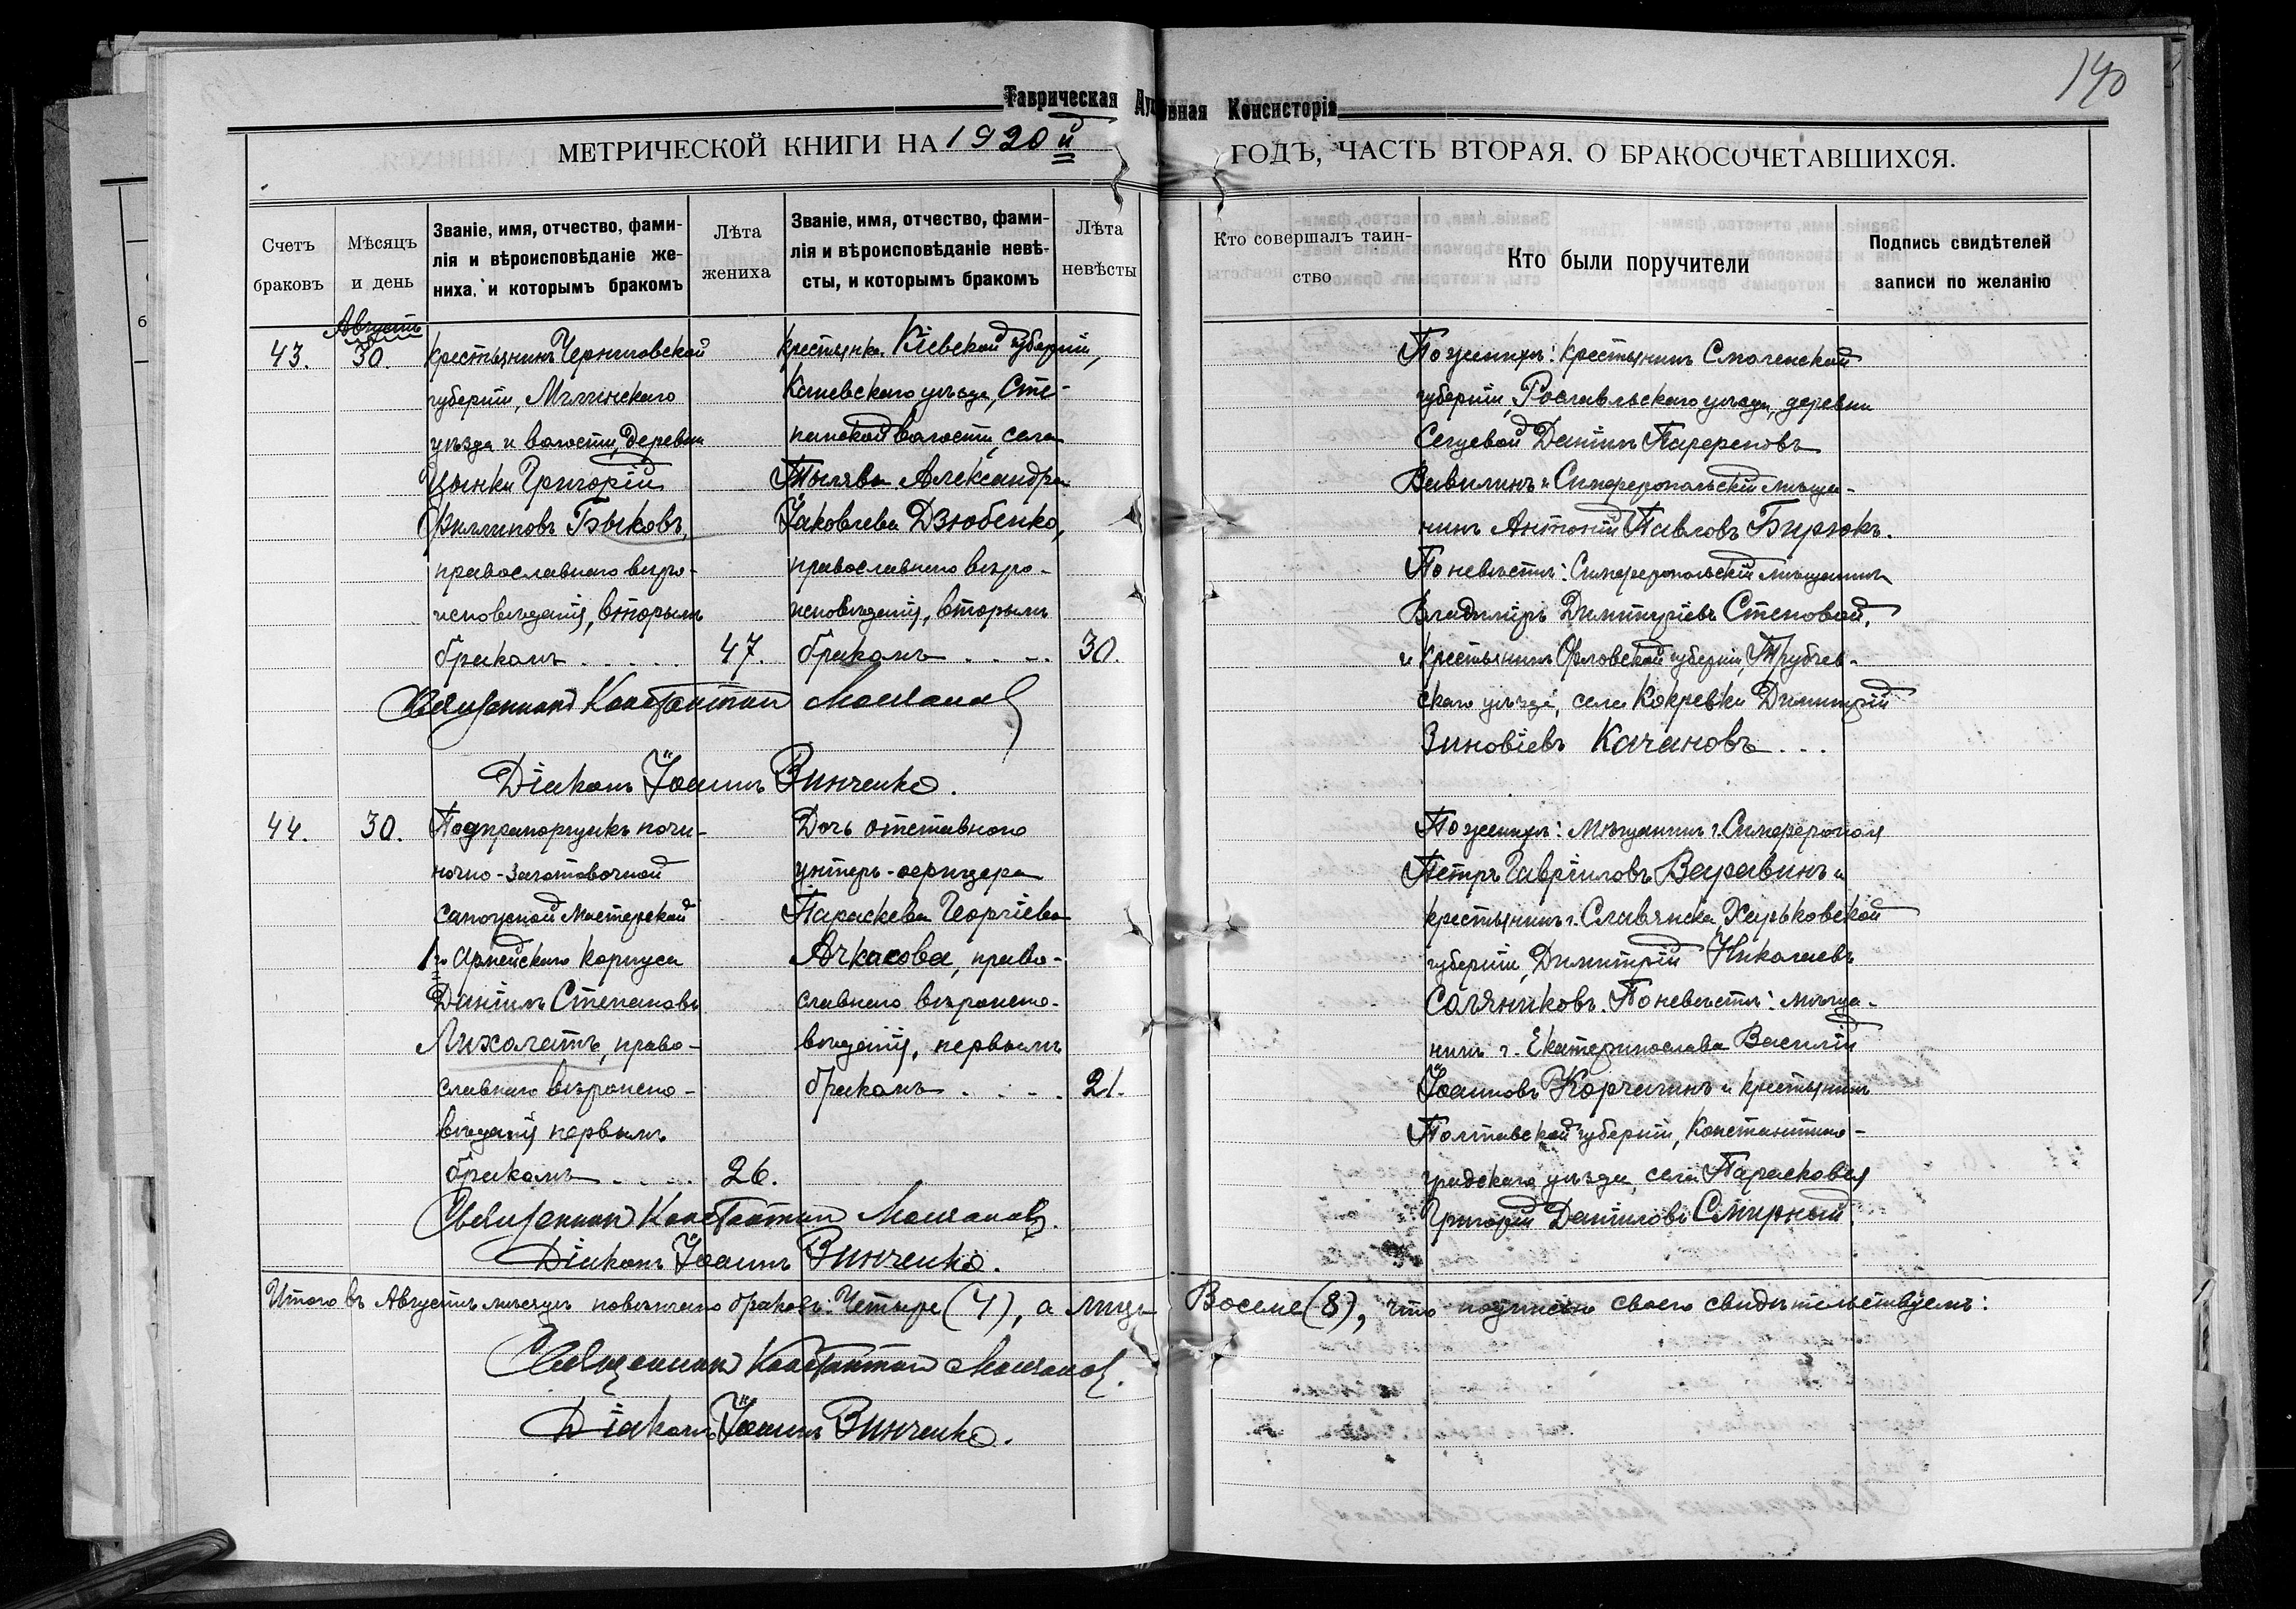 140
Таврическая Духовная Консисторія
МЕТРИЧЕСКОЙ КНИГИ НА 1920й ГОДЪ, ЧАСТЬ ВТОРАЯ. О БРАКОСОЧЕТАВШИХСЯ.
Счетъ
браковъ
Мѣсяцъ
и день
Званіе, имя, отчество, фами-
лія и вѣроисповѣданіе же-
ниха, и которымъ бракомъ
Лѣта
жениха
Званіе, имя, отчество, фами-
лія и вѣроисповѣданіе невѣ-
сты, и которымъ бракомъ
Лѣта
невѣсты
Кто совершалъ таин-
ство
Кто были поручители
Подпись свидѣтелей
записи по желанію
Августъ
43.
30.
Крестьянинъ Черниговской
губерніи, Мглинскаго
уѣзда и волости, деревни
Цынки Григорій
Филликовъ Быковъ,
православнаго вѣро-
исповѣданія, вторымъ
бракомъ . . . . .
47.
Крестьянка Кіевской губерніи,
Каневскаго уѣзда, Сте-
панской волости, села
Тылява Александра
Іаковлева Дзюбенко,
православнаго вѣро-
исповѣданія, вторымъ
бракомъ . . . .
30.
По женихѣ: крестьянинъ Смоленской
губерніи, Рославльскаго уѣзда, деревни
Сещевой Даніилъ
Вавилинъ и Симферопольскій мѣща-
нинъ Антоній Павловъ Бирюкъ.
По невѣстѣ: Симферопольскій мѣщанинъ
Владиміръ Димитріевъ Степовой,
и крестьянинъ Орловской губерніи, Трубчев-
скаго уѣзда, села Кокревки Димитрій
Зиновіевъ Качановъ . . .
Священникъ Константинъ Молчановъ
Діаконъ Іоаннъ Винченко.
44.
30.
Подпрапорщикъ почи-
ночно-заготовочной
сапожной мастерской
1го Армейскаго корпуса
Даніилъ Степановъ
Лихолатъ, право-
славнаго вѣроиспо-
вѣданія первымъ
бракомъ . . . .
26.
Дочь отставного
унтеръ-офицера
Параскева Георгіева
Ачкасова, право-
славнаго вѣроиспо-
вѣданія, первымъ
бракомъ . . . .
21.
По женихѣ: мѣщанинъ г. Симферополя
Петръ Гавріиловъ Варавинъ и
крестьянинъ г. Славянска, Харьковской
губерніи, Димитрій Николаевъ
Соляниковъ. По невѣстѣ: мѣща-
нинъ г. Екатеринослава Василій
Іоанновъ Корчагинъ и крестьянинъ
Полтавской губерніи, Константино-
градскаго уѣзда, села Парасковея
Григорій Даніиловъ Смирный.
Священникъ Константинъ Молчановъ.
Діаконъ Іоаннъ Винченко.
Итого въ Августѣ мѣсяцѣ повѣнчано браковъ: Четыре (4), а лицъ Восемь (8), что подписью своею свидѣтельствуемъ:
Священникъ Константинъ Молчановъ.
Діаконъ Іоаннъ Винченко.